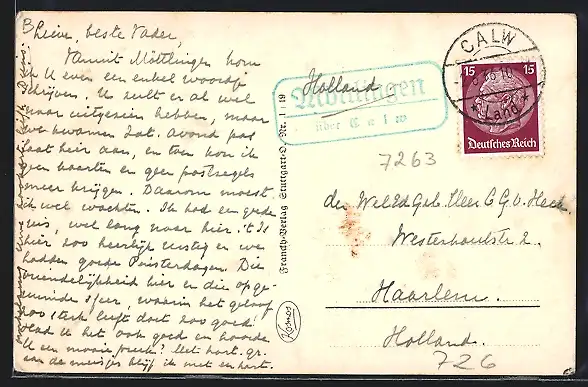 Lieve, beste Vader,
Vanuit Möttlingen kom
ik U even een enkel woordje
schrijven. U zult er al wel
naar uitgezien hebben, maar
we kwamen Zat. Avond pas
laat hier aan, en toen kon ik
geen kaarten en geen postzegels
meer krijgen. Daarom moest
ik wel wachten. Ik had een goede
reis, wel lang naar hier. 't Is
hier zoo heerlijk rustig en we
hadden goede Pinksterdagen. Die
vriendelijkheid hier en die opge-
wekte sfeer, waarin het geloof
zoo sterk leeft doet zoo goed.
Had U het ook goed en hoorde
U een mooie preek? Met hart. gr.
aan de meisjes blijf ik met een hart.
Franckh-Verlag Stuttgart-O. Nr. 1 1 19
Kosmos
Möttlingen
über Calw
Holland
CALW
* Land *
15 15
Deutsches Reich
7263
den WelEdGeb. Heer C.G.v. Heck
Westerhoutstr 2.
Haarlem.
Holland.
726